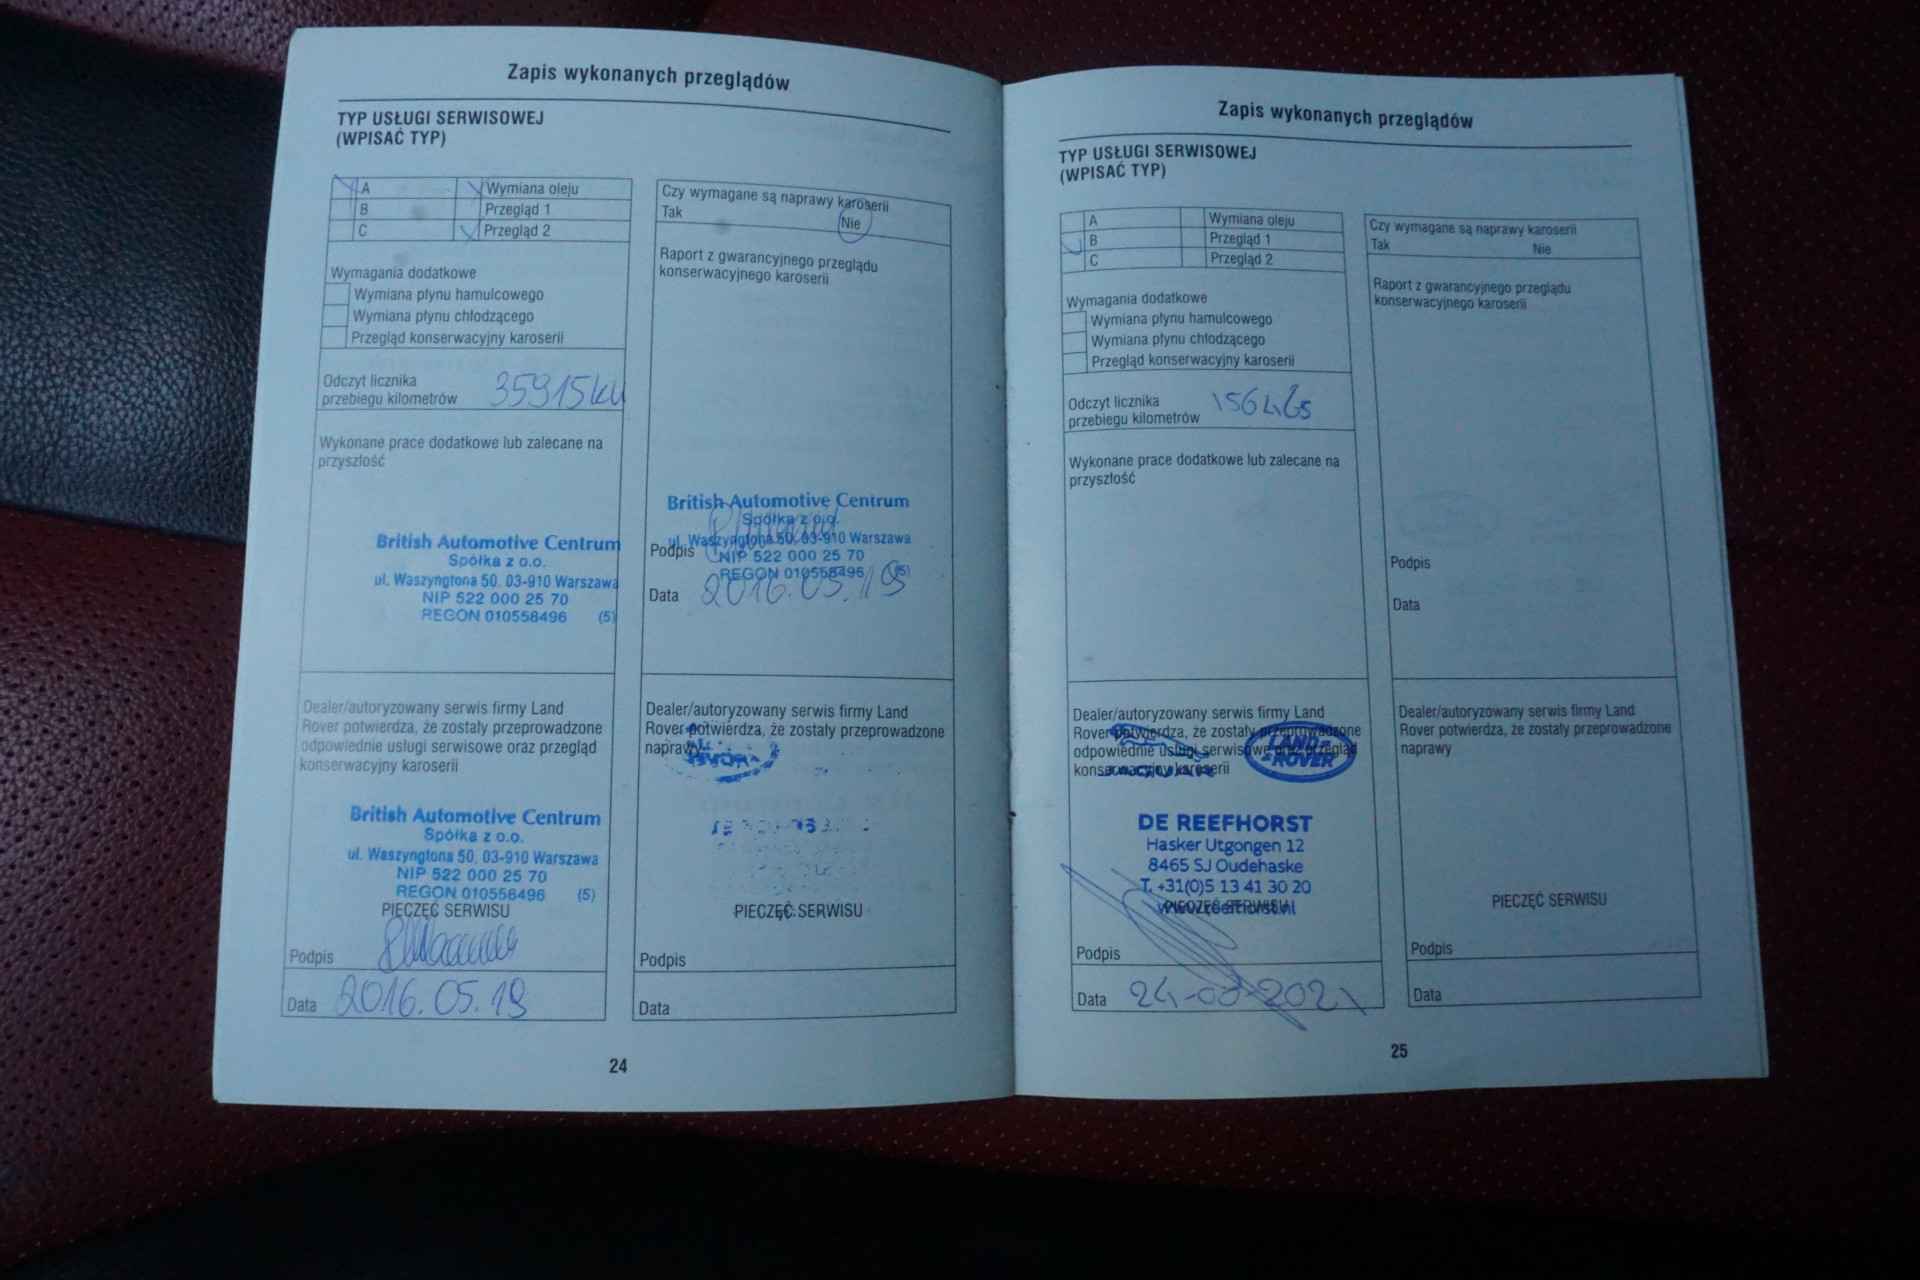 Zapis wykonanych przeglądów
TYP USŁUGI SERWISOWEJ
(WPISAĆ TYP)
A
Wymiana oleju
B
Przegląd 1
C
Przegląd 2
Wymagania dodatkowe
Wymiana płynu hamulcowego
Wymiana płynu chłodzącego
Przegląd konserwacyjny karoserii
Odczyt licznika
przebiegu kilometrów 35915km
Wykonane prace dodatkowe lub zalecane na
przyszłość
British Automotive Centrum
Spółka z o.o.
ul. Waszyngtona 50, 03-910 Warszawa
NIP 522 000 25 70
REGON 010558496 (5)
Dealer/autoryzowany serwis firmy Land
Rover potwierdza, że zostały przeprowadzone
odpowiednie usługi serwisowe oraz przegląd
konserwacyjny karoserii
British Automotive Centrum
Spółka z o.o.
ul. Waszyngtona 50, 03-910 Warszawa
NIP 522 000 25 70
REGON 010558496 (5)
PIECZĘĆ SERWISU
Podpis
Data 2016.05.19
Czy wymagane są naprawy karoserii
Tak Nie
Raport z gwarancyjnego przeglądu
konserwacyjnego karoserii
British Automotive Centrum
Spółka z o.o.
ul. Waszyngtona 50, 03-910 Warszawa
Podpis
NIP 522 000 25 70
REGON 010558496 (5)
Data 2016.05.19
Dealer/autoryzowany serwis firmy Land
Rover potwierdza, że zostały przeprowadzone
naprawy
PIECZĘĆ SERWISU
Podpis
Data
24
Zapis wykonanych przeglądów
TYP USŁUGI SERWISOWEJ
(WPISAĆ TYP)
A
Wymiana oleju
B
Przegląd 1
C
Przegląd 2
Wymagania dodatkowe
Wymiana płynu hamulcowego
Wymiana płynu chłodzącego
Przegląd konserwacyjny karoserii
Odczyt licznika
przebiegu kilometrów
Wykonane prace dodatkowe lub zalecane na
przyszłość
Dealer/autoryzowany serwis firmy Land
Rover potwierdza, że zostały przeprowadzone
odpowiednie usługi serwisowe oraz przegląd
konserwacyjny karoserii
LAND
ROVER
DE REEFHORST
Hasker Utgongen 12
8465 SJ Oudehaske
T. +31(0)5 13 41 30 20
www.reefhorst.nl
PIECZĘĆ SERWISU
Podpis
Data
Czy wymagane są naprawy karoserii
Tak Nie
Raport z gwarancyjnego przeglądu
konserwacyjnego karoserii
Podpis
Data
Dealer/autoryzowany serwis firmy Land
Rover potwierdza, że zostały przeprowadzone
naprawy
PIECZĘĆ SERWISU
Podpis
Data
25